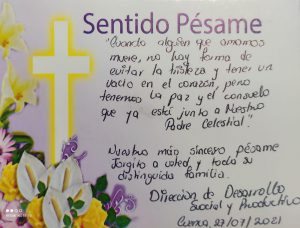 Sentido Pésame
"Cuando alguien que amamos
muere, no hay forma de
evitar la tristeza y tener un
vacío en el corazón, pero
tenemos la paz y el consuelo
que ya está junto a Nuestro
Padre Celestial".
Nuestro más sincero pésame
Jorgito a usted, y toda su
distinguida familia.
Dirección de Desarrollo
Social y Productivo
Cuenca 27/07/2021